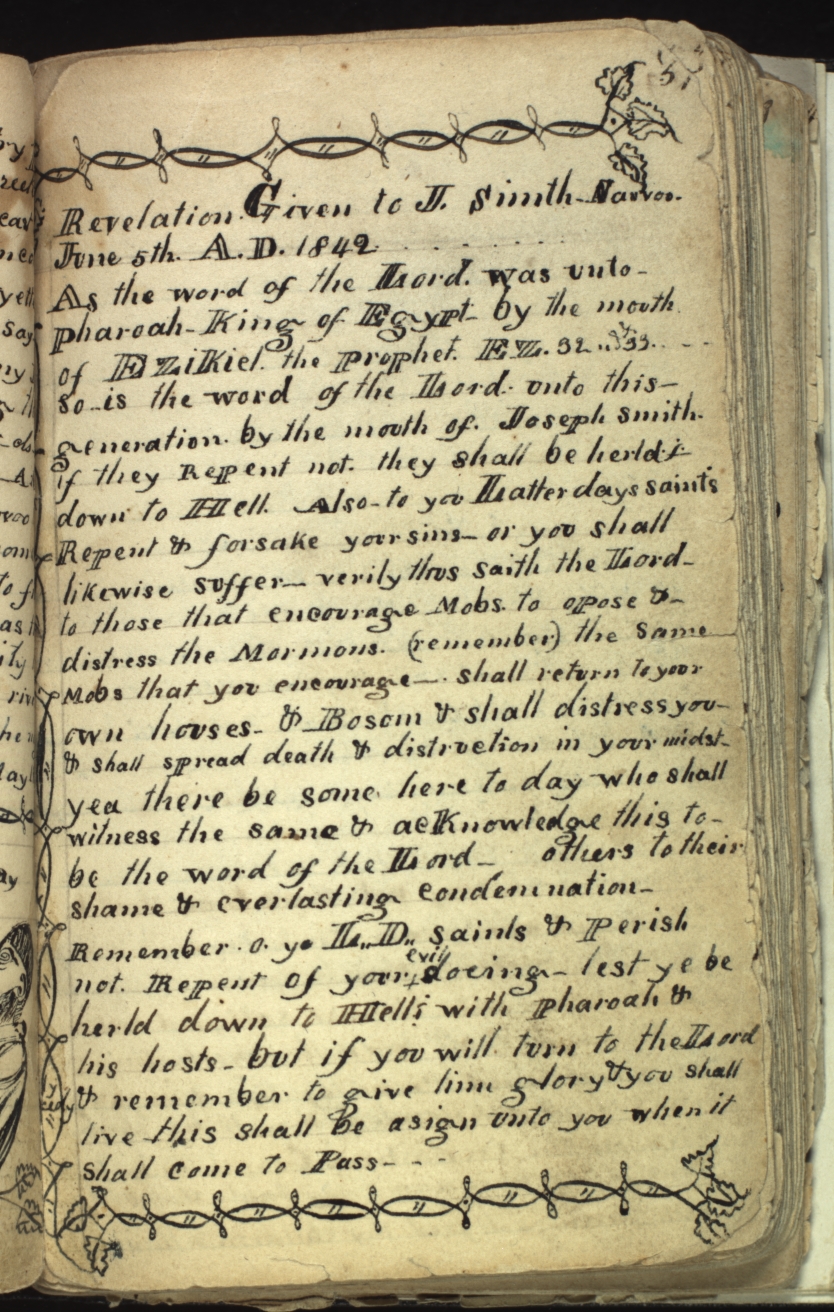 51
Revelation. Given to J. Smith. Nauvoo.
June 5th. A.D. 1842
As the word of the Lord. was unto-
pharoah-King of Egypt- by the mouth
of Ezikiel. the prophet. EZ. 32 .. 33. - -
so is the word of the Lord. unto this-
generation. by the mouth of. Joseph smith.
if they Repent not. they shall be herld
down to Hell. Also-to you Latter days saints
Repent & forsake your sins- or you shall
likewise suffer- verily thus saith the Lord-
to those that encourage Mobs. to oppose &-
distress the Mormons. (remember) the same
Mobs that you encourage-. shall return to your
own houses- & Bosom & shall distress you-
& shall spread death & distruction in your midst-
yea there be some here to day who shall
witness the same & acKnowledge this to-
be the word of the Lord- others to their
shame & everlasting condemnation-
Remember. o. ye L.,D.,, saints & perish
not. Repent of your evil doeing- lest ye be
herld down to Hell; with pharoah &
his hosts- but if you will. turn to the Lord
& remember to give him glory & you shall
live this shall be asign unto you when it
shall come to Pass- - -